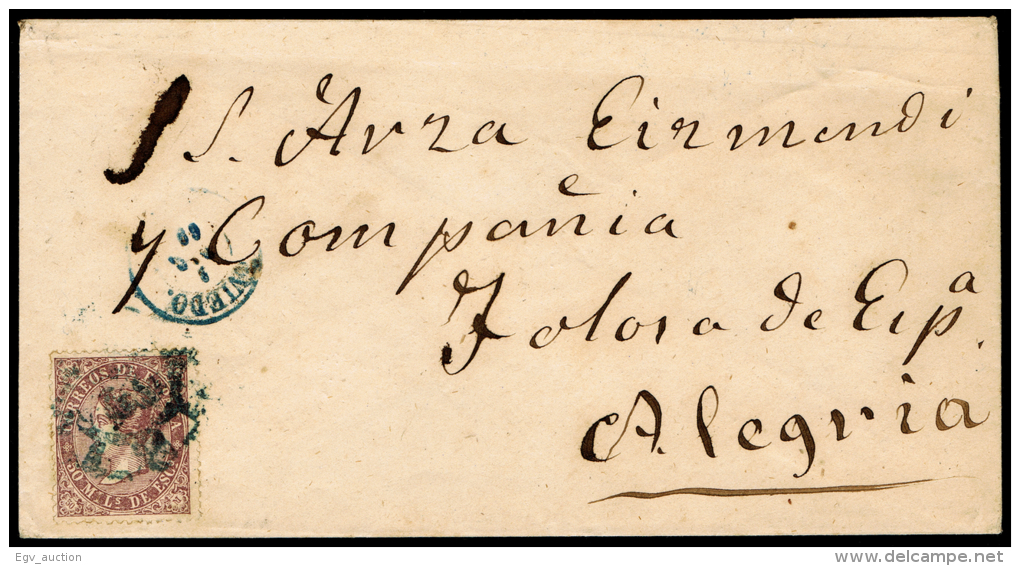 S. Arza Eizmendi
y Compañia
Tolosa de Espª.
Alegria
OVIEDO.
69
CORREOS DE ESPAÑA
50 M. Lˢ DE ESCº
Egv_auction
www.delcampe.net